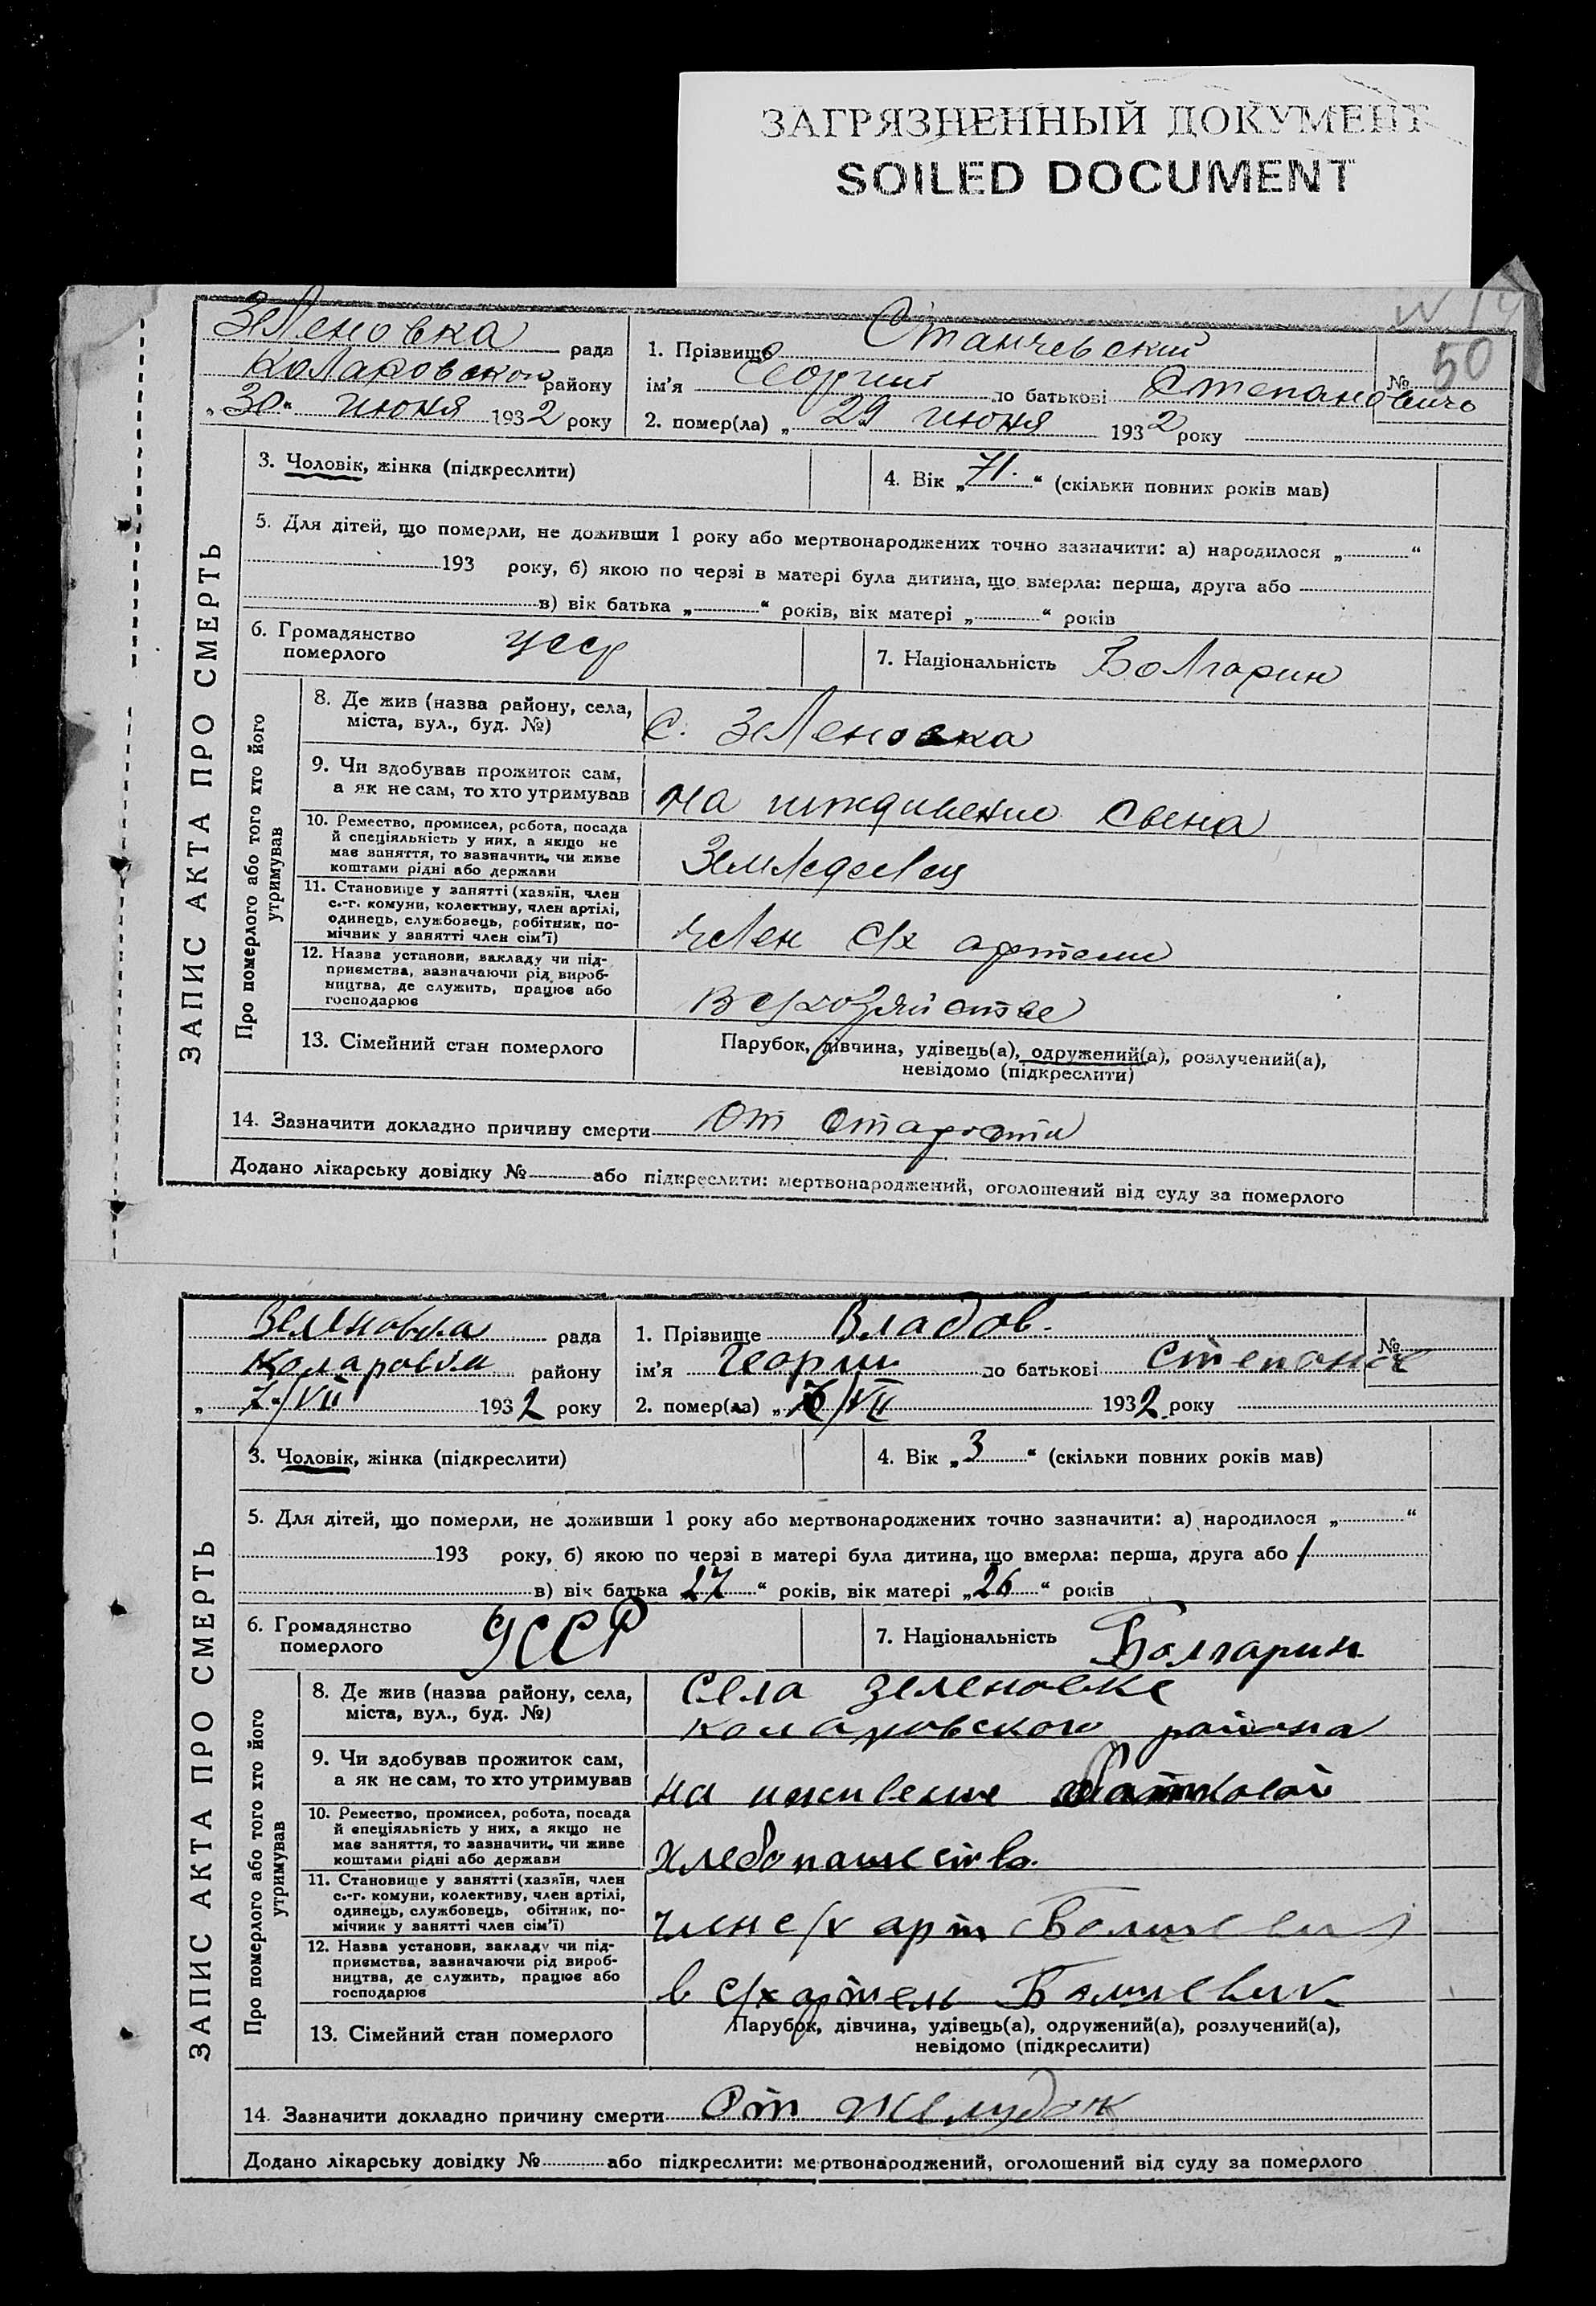 ЗАГРЯЗНЕННЫЙ ДОКУМЕНТ
SOILED DOCUMENT
N 19
50
ЗАПИС АКТА ПРО СМЕРТЬ
Зеленовка рада
Коларовского району
„30“ июня 1932 року
1. Прізвище Станчевский №
ім'я Георгий по батькові Степанович
2. помер(ла) „29 июня 1932 року
3. Чоловік, жінка (підкреслити)
4. Вік „71.“ (скільки повних років мав)
5. Для дітей, що померли, не доживши 1 року або мертвонароджених точно зазначити: а) народилося „ “
193 року, б) якою по черзі в матері була дитина, що вмерла: перша, друга або
в) вік батька „ “ років, вік матері „ “ років
6. Громадянство
померлого
УССР
7. Національність Болгарин
Про померлого або того хто його
утримував
8. Де жив (назва району, села,
міста, вул., буд. №)
с. Зеленовка
9. Чи здобував прожиток сам,
а як не сам, то хто утримував
На иждивению сына
10. Ремество, промисел, робота, посада
й спеціяльність у них, а якщо не
має заняття, то зазначити, чи живе
коштами рідні або держави
Земледелец
11. Становище у занятті (хазяїн, член
с.-г. комуни, колективу, член артілі,
одинець, службовець, робітник, по-
мічник у занятті член сім'ї)
Член с/х артели
12. Назва установи, закладу чи під-
приємства, зазначаючи рід вироб-
ництва, де служить, працює або
господарює
В с/хозяйстве
13. Сімейний стан померлого
Парубок, дівчина, удівець(а), одружений(а), розлучений(а),
невідомо (підкреслити)
14. Зазначити докладно причину смерти От старости
Додано лікарську довідку № або підкреслити: мертвонароджений, оголошений від суду за померлого
ЗАПИС АКТА ПРО СМЕРТЬ
Зеленовка рада
Коларовка району
„7“/VII 1932 року
1. Прізвище Владов. №
ім'я Георги по батькові Степанов
2. помер(ла) „ /VII 1932 року
3. Чоловік, жінка (підкреслити)
4. Вік „3“ (скільки повних років мав)
5. Для дітей, що померли, не доживши 1 року або мертвонароджених точно зазначити: а) народилося „ “
193 року, б) якою по черзі в матері була дитина, що вмерла: перша, друга або 1
в) вік батька 27 “ років, вік матері „26“ років
6. Громадянство
померлого
УССР
7. Національність Болгарин
Про померлого або того хто його
утримував
8. Де жив (назва району, села,
міста, вул., буд. №)
Села Зеленовке
Коларовского района
9. Чи здобував прожиток сам,
а як не сам, то хто утримував
на
10. Ремество, промисел, робота, посада
й спеціяльність у них, а якщо не
має заняття, то зазначити, чи живе
коштами рідні або держави
Хлебопашество.
11. Становище у занятті (хазяїн, член
с.-г. комуни, колективу, член артілі,
одинець, службовець, обітник, по-
мічник у занятті член сім'ї)
член с/х арт
12. Назва установи, закладу чи під-
приємства, зазначаючи рід вироб-
ництва, де служить, працює або
господарює
в с/х артель Болшевик
13. Сімейний стан померлого
Парубок, дівчина, удівець(а), одружений(а), розлучений(а),
невідомо (підкреслити)
14. Зазначити докладно причину смерти От желудок
Додано лікарську довідку № або підкреслити: мертвонароджений, оголошений від суду за померлого